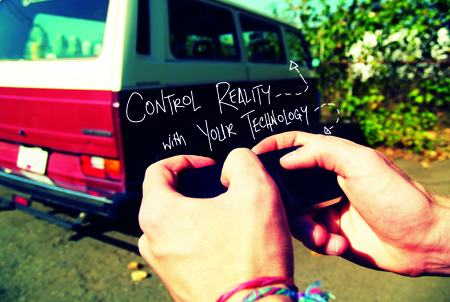 CONTROL REALITY
with YOUR TECHNOLOGY